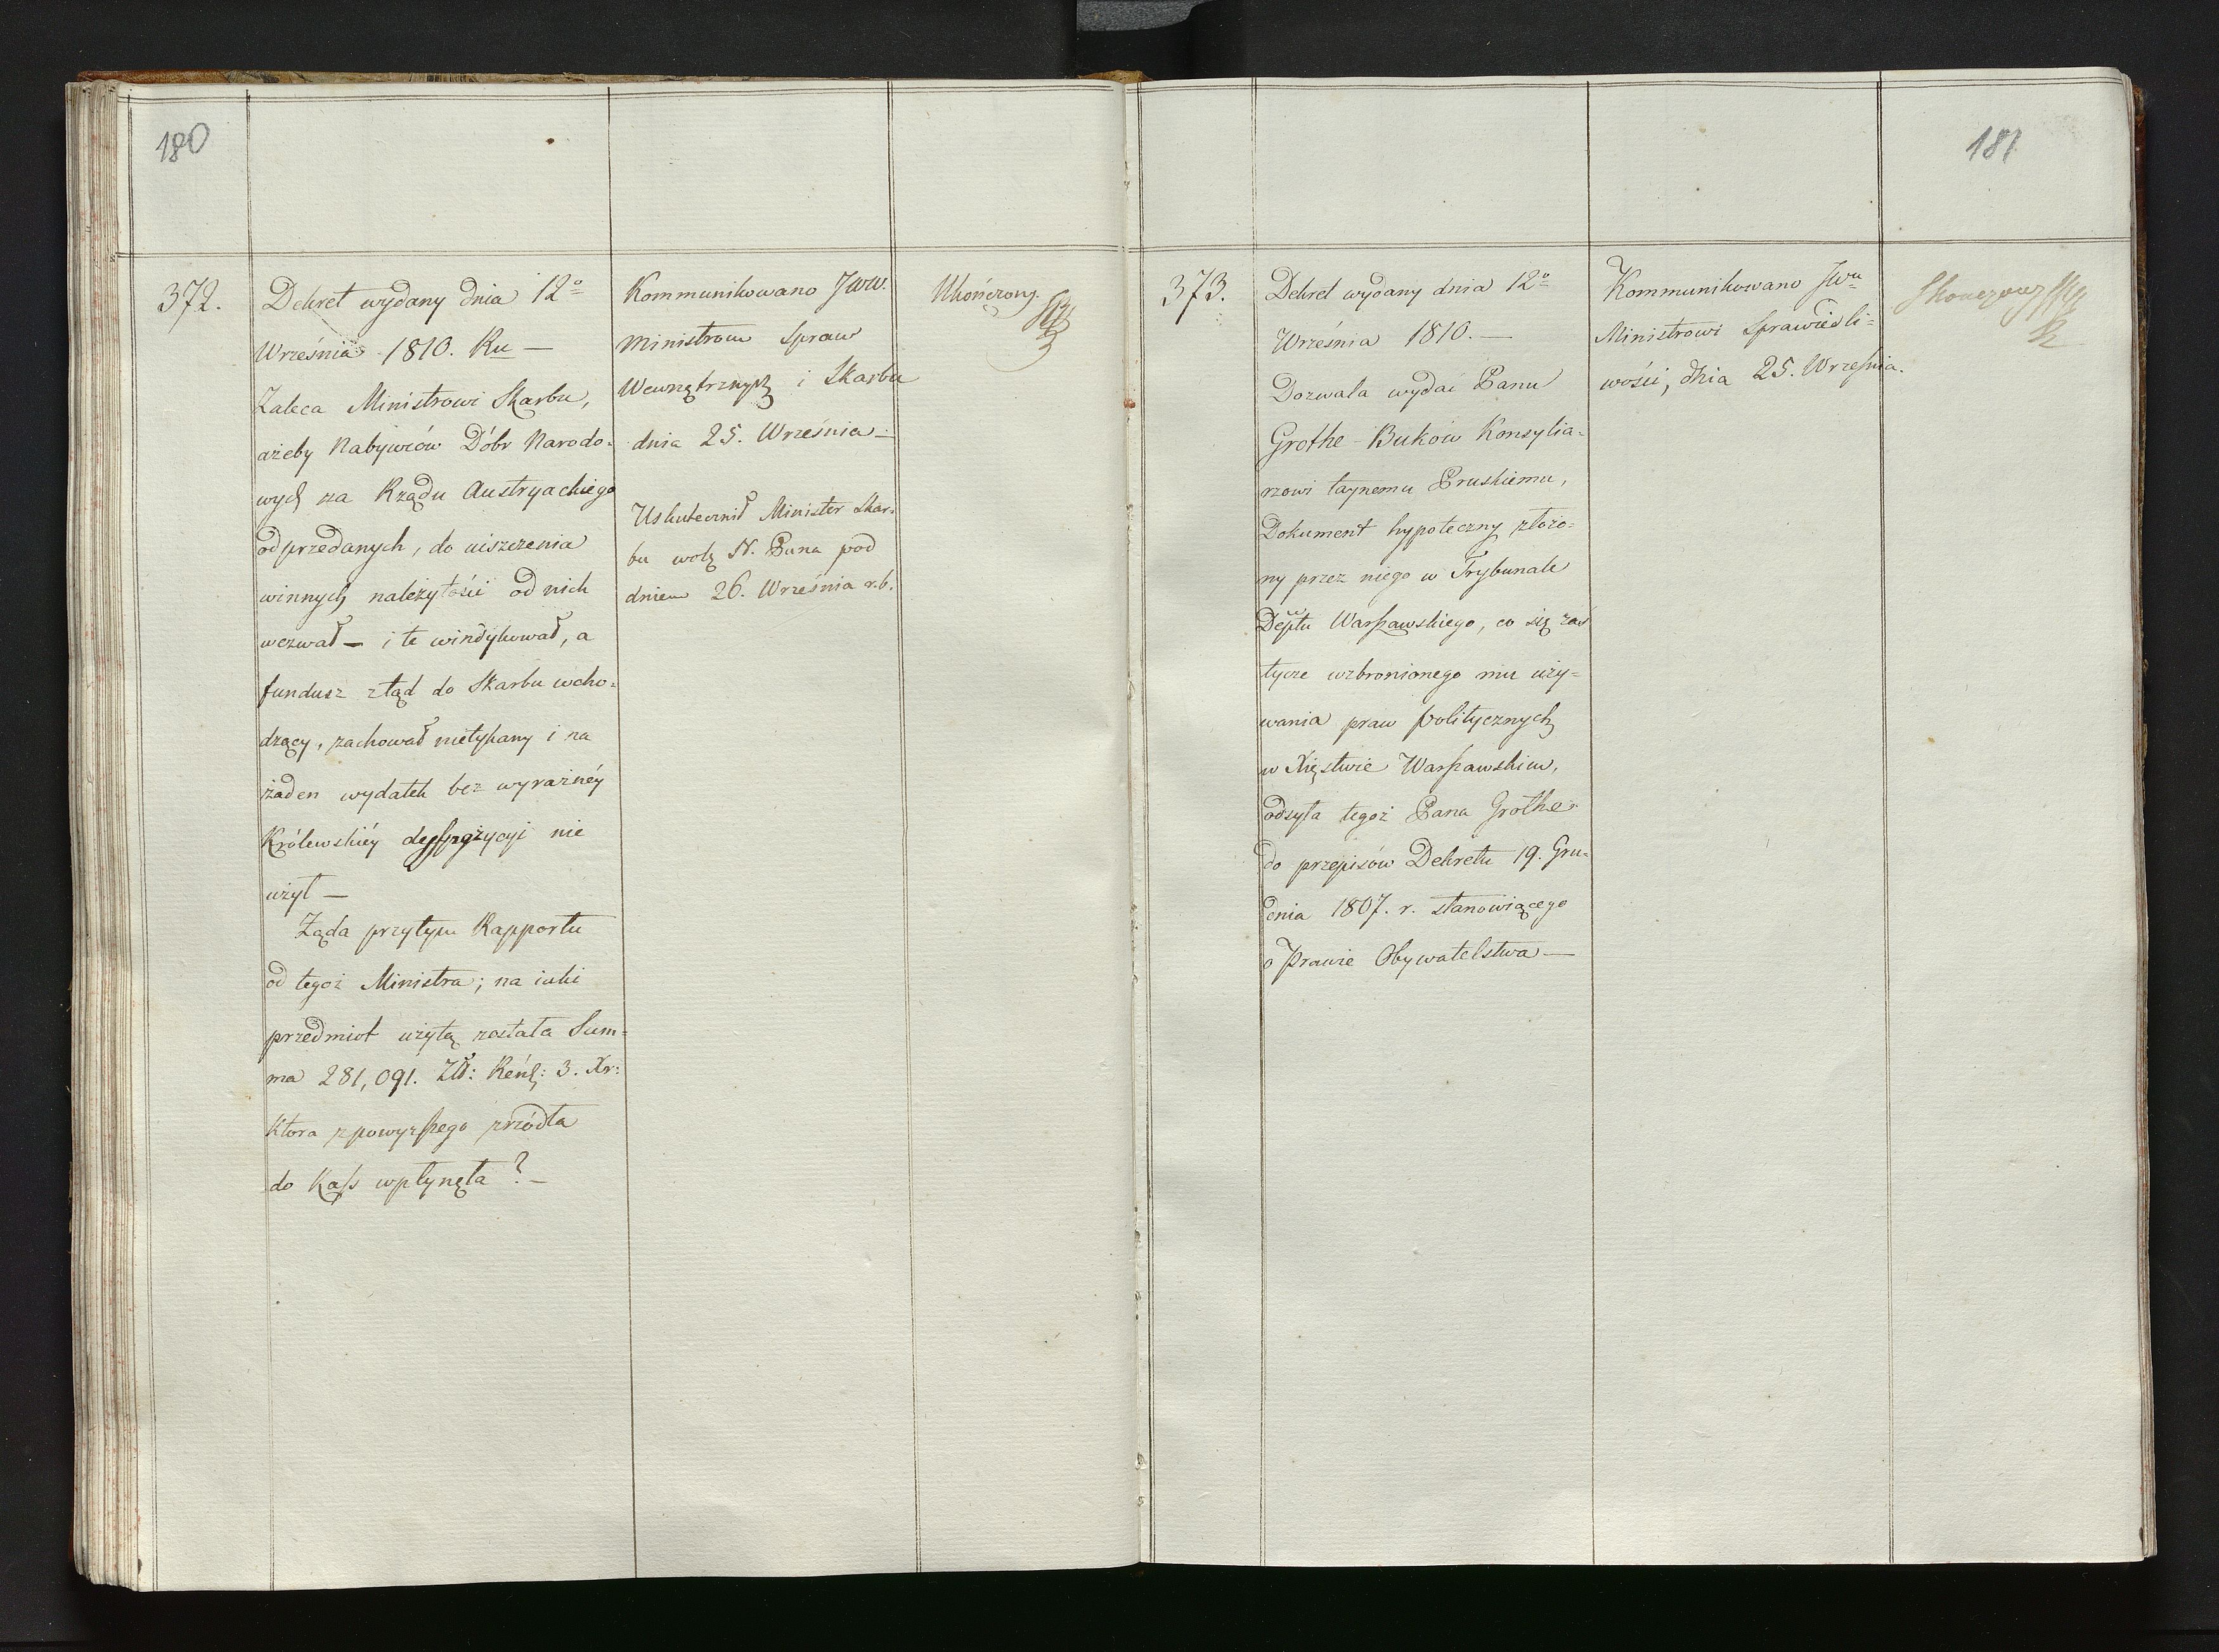 180
372.
Dekret wydany dnia 12º
Września 1810. Ru —
Zaleca Ministrowi Skarbu,
ażeby Nabywców Dóbr Narodo-
wych za Rządu Austryackiego
odprzedanych, do uiszczenia
winnych należytości od nich
wezwał — i te windykował, a
fundusz ztąd do Skarbu wcho-
dzący, zachował nietykany i na
żaden wydatek bez wyraźnéy
Królewskiéy dyspozycyi nie
użył —
Żąda przytym Rapportu
od tegoż Ministra; na iaki
przedmiot użytą została Sum=
ma 281,091. Złł: Reńs: 3. Xr:
Ktora z powyższego zrzódła
do Kass wpłynęła? —
Kommunikowano JWW.
Ministrom Spraw
Wewnętrznych i Skarbu
dnia 25. Września —
Uskutecznił Minister Skar-
bu wolą N. Pana pod
dniem 26. Września r.b.
Ukończony
181
373.
Dekret wydany dnia 12º
Września 1810. —
Dozwala wydać Panu
Grothe - Bukow Konsylia-
rzowi taynemu Pruskiemu,
Dokument hypoteczny złożo=
ny przez niego w Trybunale
Dept͠u Warszawskiego, co się zaś
tycze wzbronionego mu uży=
wania praw politycznych
w Xięstwie Warszawskim,
odsyła tegoż Pana Grothe
do przepisów Dekretu 19. Gru=
dnia 1807. r. stanowiącego
o Prawie Obywatelstwa —
Kommunikowano JWu
Ministrowi Sprawiedli=
wości, dnia 25. Września.
Skonczony